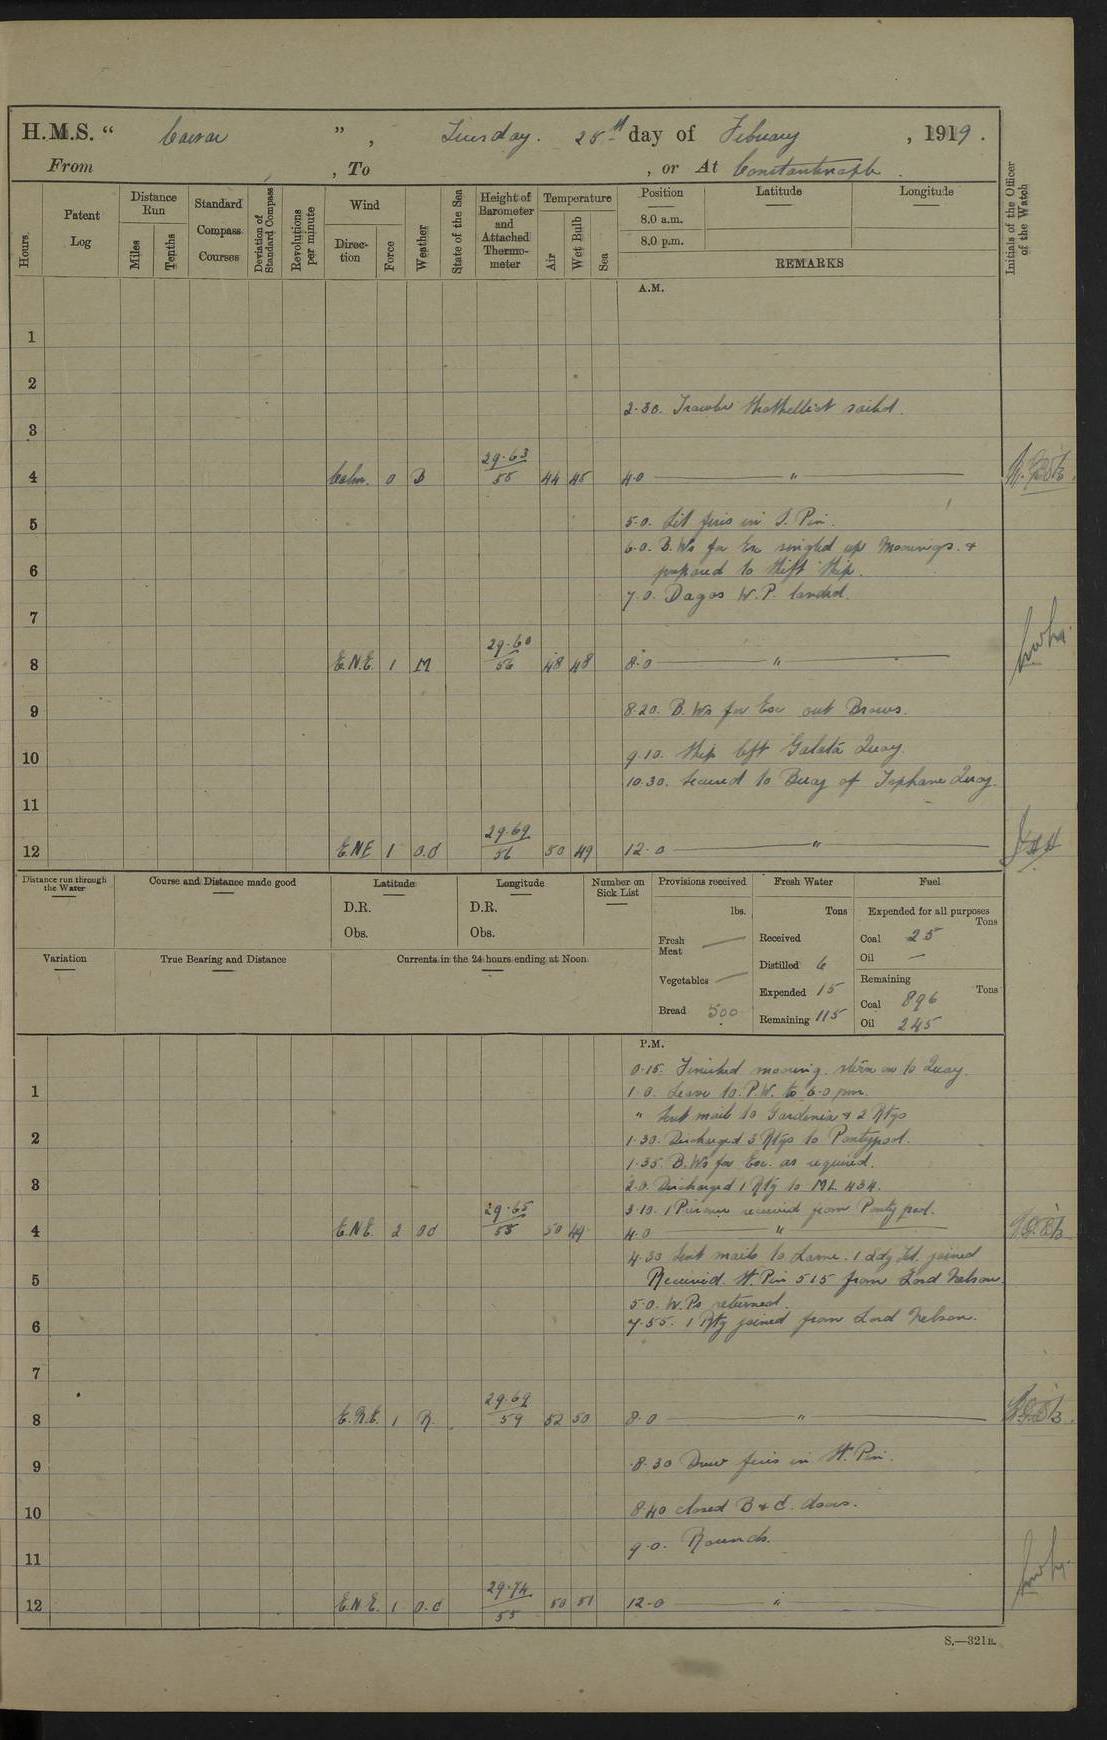 H.M.S. " Caesar ", Tuesday. 25th day of Febuary, 1919.
From , To , or At Constantinople.
Hours. Patent Log Distance Run Miles Tenths Standard Compass Courses Deviation of Standard Compass Revolutions per minute Wind Direction Force Weather State of the Sea Height of Barometer and Attached Thermometer Temperature Air Wet Bulb Sea Position 8.0 a.m. 8.0 p.m. Latitude Longitude REMARKS Initials of the Officer of the Watch
A.M.
1
2
2.30. Trawler sailed.
3
4 Calm. 0 B 29.63 55 44 45 4.0 "
5 5.0. Lit fires in S. Pin.
6.0. B. Ws for Ex singled up Moorings. +
6 prepared to shift ship.
7.0. Dagos W.P. landed.
7
8 E.N.E. 1 M 29.60 56 48 48 8.0 "
9 8.20. B. Ws for Ex out Brows.
10 9.10. Ship left Galata Quay.
10.30. Secured to Buoy of Tophane Quay.
11
12 E.N.E 1 O.d 29.69 56 50 49 12.0 "
Distance run through the Water Course and Distance made good Latitude D.R. Obs. Longitude D.R. Obs. Number on Sick List Provisions received lbs. Fresh Water Tons Fuel Expended for all purposes Tons
Variation True Bearing and Distance Currents in the 24 hours ending at Noon
Fresh Meat — Received Coal 25
Distilled 6 Oil —
Vegetables — Expended 15 Remaining Tons
Coal 896
Bread 500 Remaining 115 Oil 245
P.M.
0.15. Finished mooring. stern on to Quay.
1 1.0. Leave to P.W. to 6.0 pm.
" Sent mail to Gardenia + 2 Rtgs
2 1.30. Discharged 3 Rtgs to Pontypool.
1.35. B. Ws for Ex. as required.
3 2.0. Discharged 1 Rtg to ML 434.
3.10. 1 Prisoner received from Pontypool.
4 E.N.E. 2 Od 29.65 55 50 49 4.0 "
4.30 Sent mails to Larne. 1 joined
5 Received St. Pin 515 from Lord Nelson.
5.0. W. Ps returned.
6 7.55. 1 Rtg joined from Lord Nelson.
7
8 E.N.E. 1 R. 29.69 59 52 50 8.0 "
9 8.30 Drew fires in St. Pin.
10 8.40 closed B & C. doors.
9.0. Rounds.
11
12 E.N.E. 1 O.d 29.74 55 50 51 12.0 "
S.—321B.